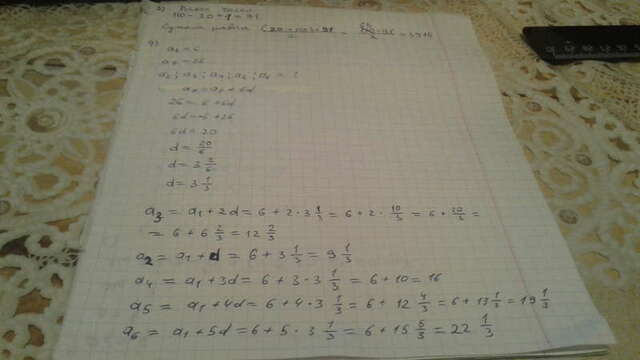 110 - 20 + 1 = 91
9)
a₁ = 6
a₇ = 26
a₂; a₃; a₄; a₅; a₆ = ?
a₇ = a₁ + 6d
26 = 6 + 6d
6d = 20
d = 20/6
d = 3 2/6
d = 3 1/3
a₃ = a₁ + 2d = 6 + 2 · 3 1/3 = 6 + 2 · 10/3 = 6 + 20/3 =
= 6 + 6 2/3 = 12 2/3
a₂ = a₁ + d = 6 + 3 1/3 = 9 1/3
a₄ = a₁ + 3d = 6 + 3 · 3 1/3 = 6 + 10 = 16
a₅ = a₁ + 4d = 6 + 4 · 3 1/3 = 6 + 12 4/3 = 6 + 13 1/3 = 19 1/3
a₆ = a₁ + 5d = 6 + 5 · 3 1/3 = 6 + 15 5/3 = 22 1/3